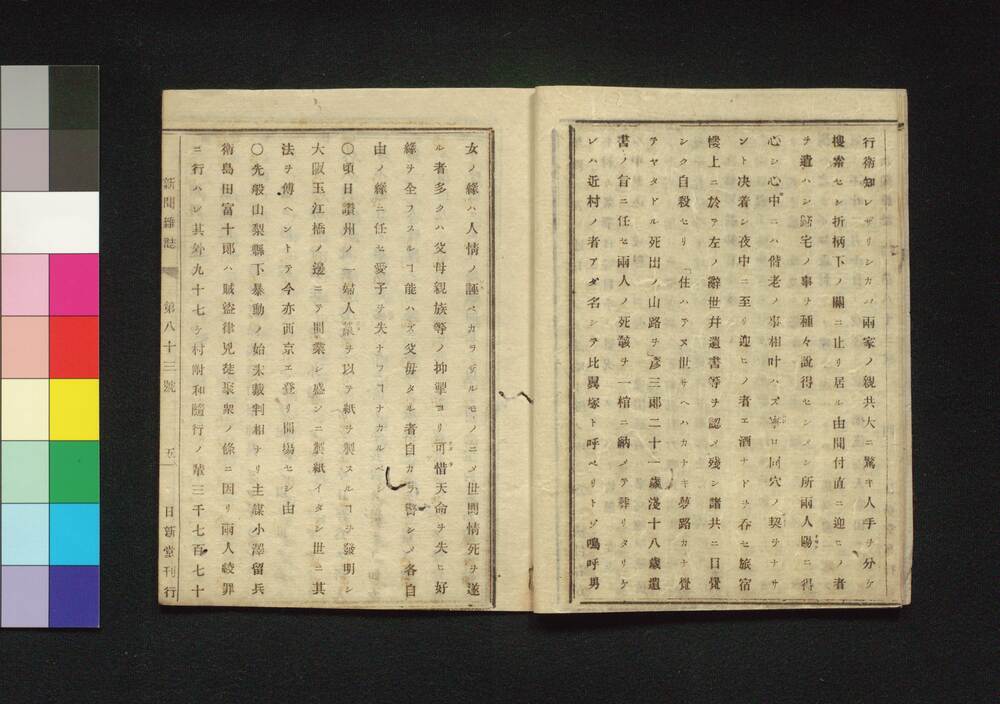 行衛知レザリシカバ兩家ノ親共大ニ驚キ人手ヲ分ケ
搜索セシ折柄下ノ關ニ止リ居ル由聞付直ニ迎ヒノ者
ヲ遣ハシ歸宅ノ事ヲ種々說得セシメシ所兩人陽ニ得
心シ心中ニハ偕老ノ事相叶ハズ寧ロ同穴ノ契ヲナサ
ント决着シ夜中ニ至リ迎ヒノ者エ酒ナドヲ呑セ旅宿
樓上ニ於テ左ノ辭世并遺書等ヲ認メ殘シ諸共ニ目覺
シク自殺セリ 住ハテヌ世サヘハカナキ夢路カナ覺
テヤタドル死出ノ山路ヲ彥三郞二十一歲淺十八歲遺
書ノ旨ニ任セ兩人ノ死骸ヲ一棺ニ納メテ葬リタリケ
レハ近村ノ者アダ名シテ比翼塚ト呼ベリトゾ嗚呼男
女ノ緣ハ人情ノ誣ベカラザルモノニメ世間情死ヲ遂
ル者多クハ父母親族等ノ抑壓ヨリ可惜天命ヲ失ヒ好
緣ヲ全フスルヿ能ハズ父母タル者自カラ省シメ各自
由ノ緣ニ任セ愛子ヲ失ナフヿナカルベシ
〇頃日讚州ノ一婦人藁ヲ以テ紙ヲ製スルヿヲ發明シ
大阪玉江橋ノ邊ニテ開業シ盛ンニ製紙イタシ世ニ其
法ヲ傳ヘントテ今亦西京エ登リ開場セシ由
〇先般山梨縣下暴動ノ始末裁判相ナリ主謀小澤留兵
衛島田富十郞ハ賊盜律兇徒聚衆ノ條ニ因リ兩人絞罪
ニ行ハレ其外九十七ケ村附和隨行ノ輩三千七百七十
新聞雜誌 第八十三號 五 日新堂刊行